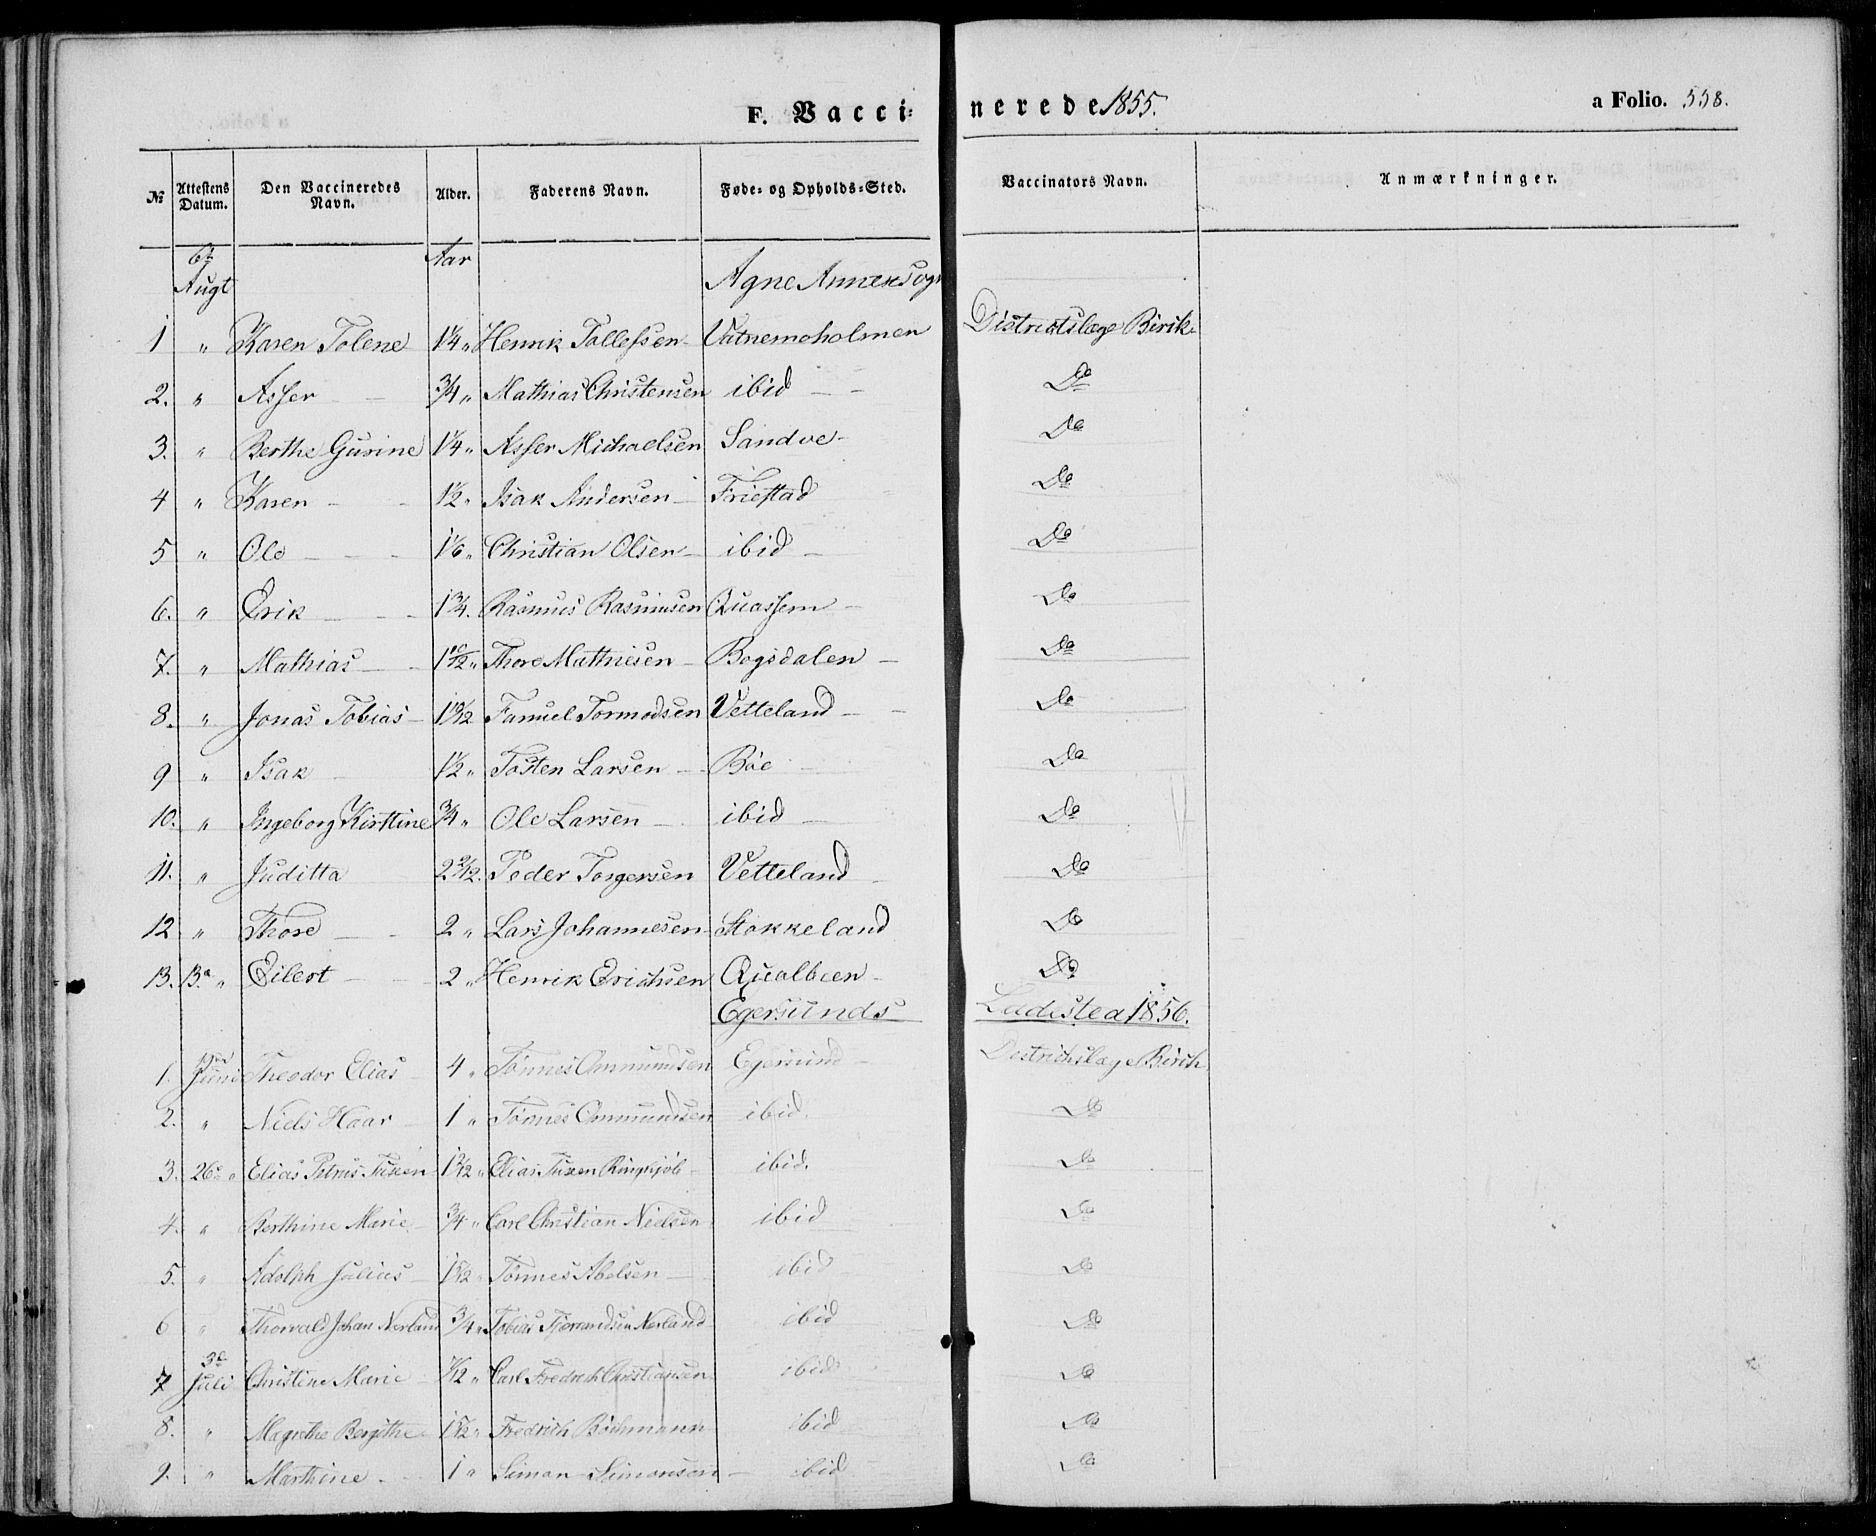 F. Vacci- nerede 1855. a Folio. 558.
№ Attestens Datum. Den Vaccineredes Navn. Alder. Faderens Navn. Føde- og Opholds-Sted. Vaccinators Navn. Anmærkninger.
6te Augt Aar Agne Annexsogn
1 " Karen Tolene 1¼ " Henrik Tollefsen Vatnemoholmen Districtslæge Birik
2. " Asser ¾ " Mathias Christensen ibid Do
3. " Berthe Gurine 1¼ " Asser Michaelsen Sandve Do
4 " Karen 1½ " Isak Andersen Friestad Do
5 " Ole 1⅙ " Christian Olsen ibid Do
6. " Erik 1¾ . Rasmus Rasmusen Quassem Do
7. " Mathias 1 10/12 " Thore Mathiesen Bogsdalen Do
8. " Jonas Tobias 1 10/12 Samuel Tormodsen Vetteland Do
9 " Isak 1½ " Tosten Larsen Bøe Do
10. " Ingeborg Kirstine ¾ " Ole Larsen ibid Do
11. " Juditta 2 2/12. Peder Torgersen Vetteland Do
12 " Thore 2 " Lars Johannesen Stokkeland Do
13. 13de " Eilert 2 " Henrik Erichsen Qualbeen Do
Egersunds Ladested 1856.
1. Juni Theodor Elias 4 " Tønnes Ommundsen Egersund Destrichslæge Birch
2. " Niels Haar 1 " Tønnes Ommundsen ibid. Do
3. 26de " Elias Petrus Tuxen " Elias Tuxen ibid. Do
4. " Berthine Marie ¾ " Carl Christian Nielsen ibid Do
5. " Adolph Julius " Tønnes Abelsen ibid Do
6 " Thorvald Johan Nerland ¾ " Tobias Nerland ibid Do
7 3de Juli Christine Marie " Carl Fredrich Christiansen ibid Do
8. " Magrethe Bergithe " Fredrich Bochmann ibid Do
9. " Marthine 1 " Simon Simonsen ibid Do